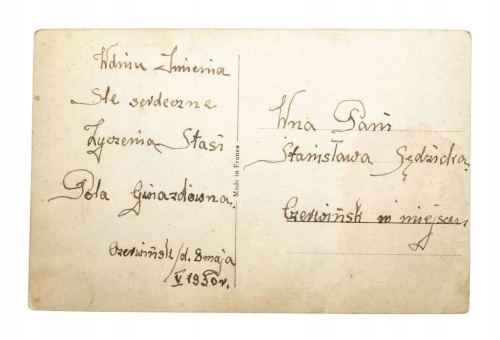 W dniu Imienia
Śle serdeczne
Życzenia Stasi
Pola Gwiazdówna.
Czerwińsk/d. 8 maja
V 1930 r.
Made in France
Wna Pani
Stanisława Sędzicka.
Czerwińsk w miejscu.